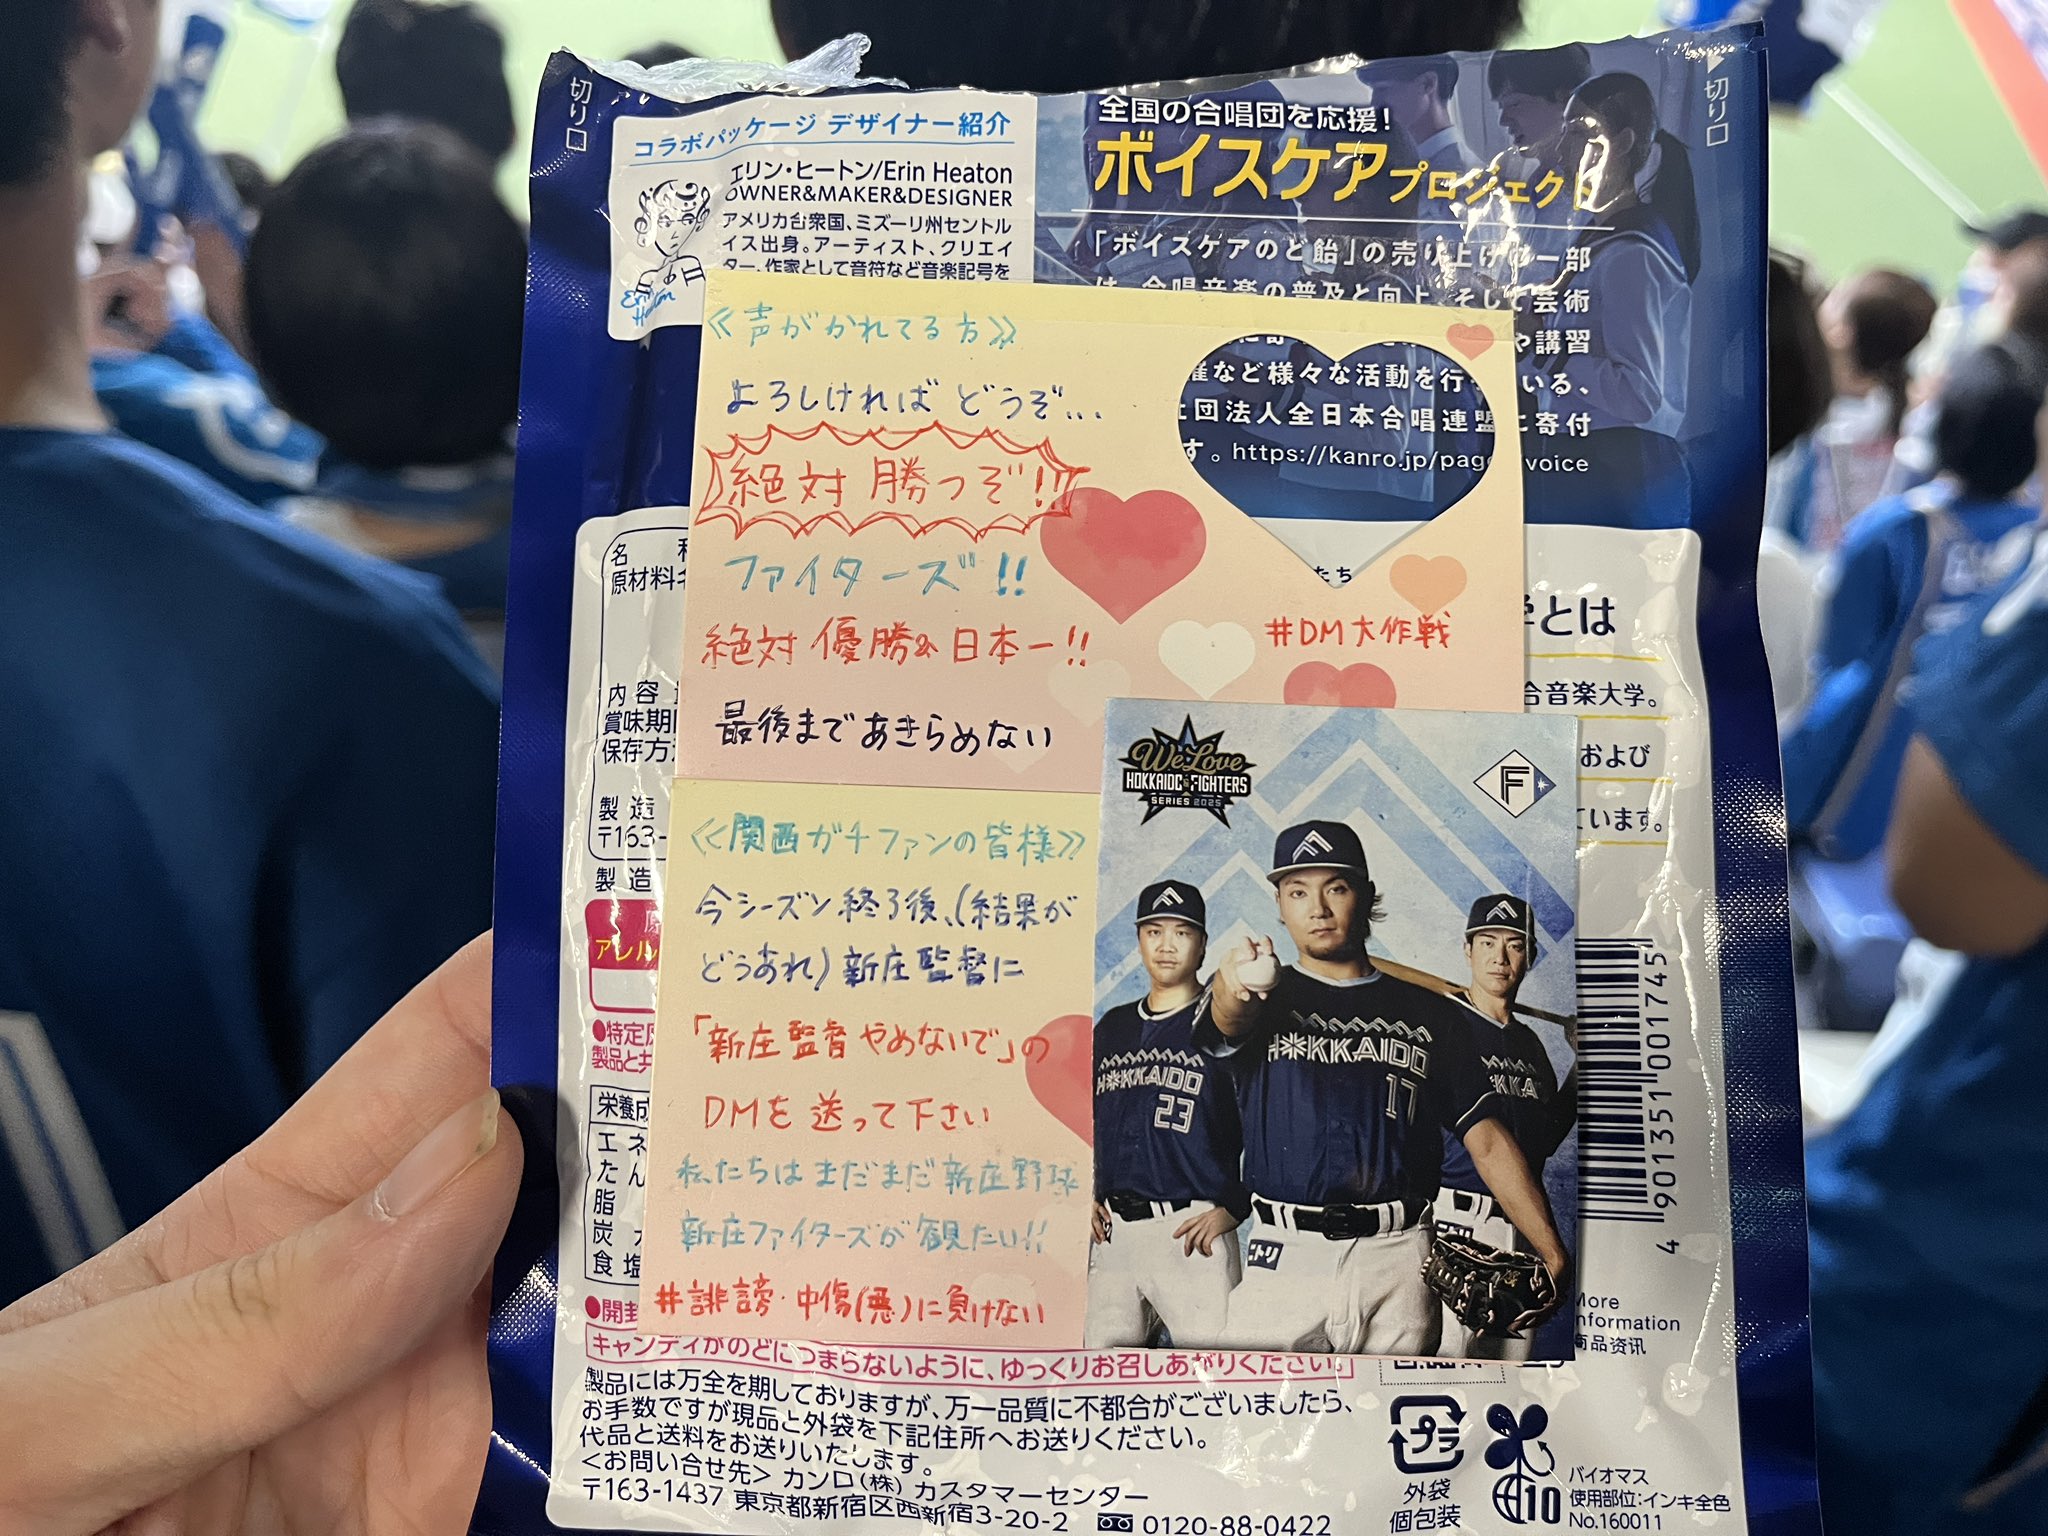 切り口
コラボパッケージ デザイナー紹介
エリン・ヒートン/Erin Heaton
OWNER&MAKER&DESIGNER
アメリカ合衆国、ミズーリ州セントル
イス出身。アーティスト、クリエイ
ター、作家として音符など音楽記号を
Erin
Heaton
全国の合唱団を応援!
ボイスケアプロジェクト
切り口
「ボイスケアのど飴」の売り上げの一部
は、合唱音楽の普及と向上、そして芸術
や講習
催など様々な活動を行っている、
団法人全日本合唱連盟に寄付
す。https://kanro.jp/pages/voice
≪声がかれてる方≫
よろしければ どうぞ...
絶対 勝つぞ!!
ファイターズ!!
絶対 優勝&日本一!!
#DM大作戦
最後まであきらめない
≪関西ガチファンの皆様≫
今シーズン終了後、(結果が
どうあれ)新庄監督に
「新庄監督やめないで」の
DMを送って下さい
私たちはまだまだ新庄野球
新庄ファイターズが観たい!!
#誹謗・中傷(悪)に負けない
We Love
HOKKAIDO FIGHTERS
SERIES 2025
F
HOKKAIDO
23
HOKKAIDO
17
ニトリ
名
原材料
内容
賞味期
保存方
製造
〒163-
製造
アレル
●特定
製品と共
栄養成
エネ
たん
脂
炭
食塩
●開封
とは
音楽大学。
および
ています。
4 901351 001745
More
Information
商品资讯
キャンディがのどにつまらないように、ゆっくりお召しあがりください。
製品には万全を期しておりますが、万一品質に不都合がございましたら、
お手数ですが現品と外袋を下記住所へお送りください。
代品と送料をお送りいたします。
<お問い合せ先> カンロ(株) カスタマーセンター
〒163-1437 東京都新宿区西新宿3-20-2 0120-88-0422
プラ
外袋
個包装
10
バイオマス
使用部位:インキ全色
No.160011